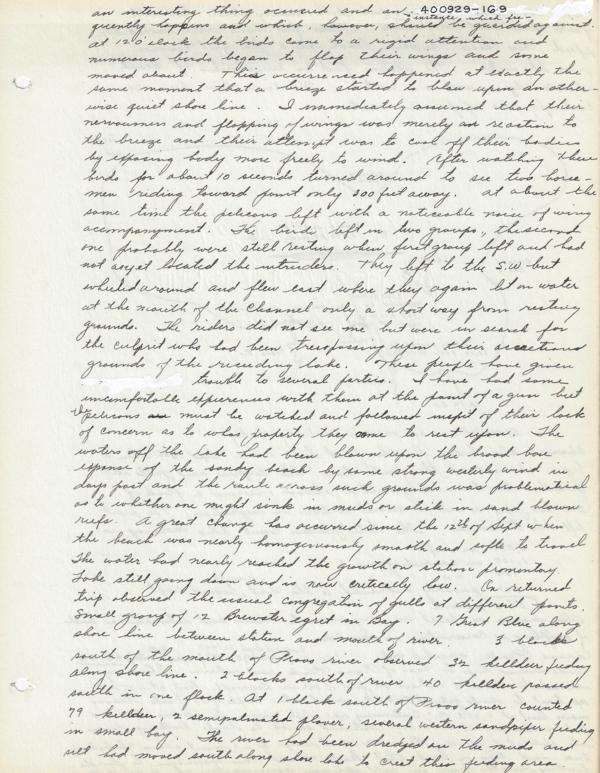 400929-169
an interesting thing occurred and an instance which fre-
quently happens and which, however, should be guarded against.
At 12 o'clock the birds came to a rigid attention and
numerous birds began to flap their wings and some
moved about. This occurrence happened at exactly the
same moment that a breeze started to blow upon an other-
wise quiet shore line. I immediately assumed that their
nervousness and flapping of wings was merely a reaction to
the breeze and their attempt was to cool off their bodies
by exposing body more freely to wind. After watching these
birds for about 10 seconds turned around to see two horse-
men riding toward point only 300 feet away. At about the
same time the pelicans left with a noticeable noise of wing
accompanyment. The birds left in two groups, the second
one probably were still resting when first group left and had
not as yet located the intruders. They left to the S.W. but
wheeled around and flew east where they again lit on water
at the mouth of the Channel only a short way from resting
grounds. The riders did not see me but were in search for
the culprit who had been tresspassing upon their
grounds of the receeding lake. These people have given
trouble to several parties. I have had some
uncomfortable experiences with them at the point of a gun but
Pelicans must be watched and followed inspit of their lack
of concern as to whos property they come to rest upon. The
waters off the lake had been blown upon the broad bare
expanse of the sandy beach by some strong westerly wind in
days past and the route across such grounds was problematical
as to whether one might sink in muds or stick in sand blown
reefs. A great change has occurred since the 12th of Sept when
the beach was nearly homogeneously smooth and softe to travel
The water had nearly reached the growth on station promontory.
Lake still going down and is now critically low. On returned
trip observed the usual congregation of gulls at different points.
Small group of 12 Brewster egret in Bay. 7 Great Blue along
shore line between station and mouth of river. 3 blocks
south of the mouth of Provo river observed 32 killdeer feeding
along shore line. 2 blocks south of river 40 killdeer passed
south in one flock. At 1 block south of Provo river counted
79 killdeer, 2 semipalmated plover, several western sandpiper feeding
in small bay. The river had been dredged and the muds and
silt had moved south along shore lake to creat this feeding area.